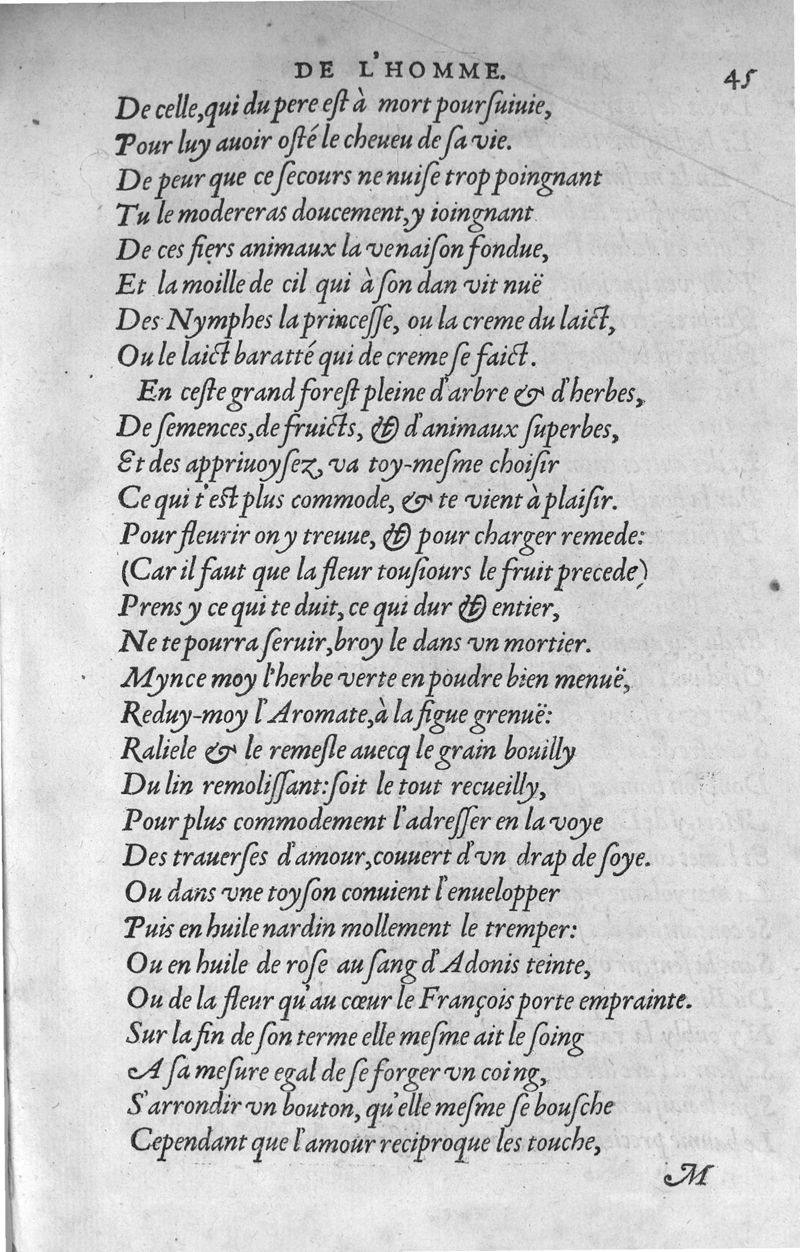 DE L'HOMME. 45
De celle, qui du pere eſt à mort pourſuiuie,
Pour luy auoir oſté le cheueu de ſa vie.
De peur que ce ſecours ne nuiſe trop poingnant
Tu le modereras doucement, y ioingnant
De ces fiers animaux la venaiſon fondue,
Et la moille de cil qui à ſon dan vit nuë
Des Nymphes la princeſſe, ou la creme du laict,
Ou le laict baratté qui de creme ſe faict.
En ceſte grand foreſt pleine d'arbre & d'herbes,
De ſemences, de fruicts, & d'animaux ſuperbes,
Et des appriuoyſez, va toy-meſme choiſir
Ce qui t'eſt plus commode, & te vient à plaiſir.
Pour fleurir on y treuue, & pour charger remede:
(Car il faut que la fleur touſiours le fruit precede)
Prens y ce qui te duit, ce qui dur & entier,
Ne te pourra ſeruir, broy le dans vn mortier.
Mynce moy l'herbe verte en poudre bien menuë,
Reduy-moy l'Aromate, à la figue grenuë:
Raliele & le remeſle auecq le grain bouilly
Du lin remoliſſant: ſoit le tout recueilly,
Pour plus commodement l'adreſſer en la voye
Des trauerſes d'amour, couuert d'vn drap de ſoye.
Ou dans vne toyſon conuient l'enuelopper
Puis en huile nardin mollement le tremper:
Ou en huile de roſe au ſang d'Adonis teinte,
Ou de la fleur qu'au cœur le François porte emprainte.
Sur la fin de ſon terme elle meſme ait le ſoing
A ſa meſure egal de ſe forger vn coing,
S'arrondir vn bouton, qu'elle meſme ſe bouſche
Cependant que l'amour reciproque les touche,
M